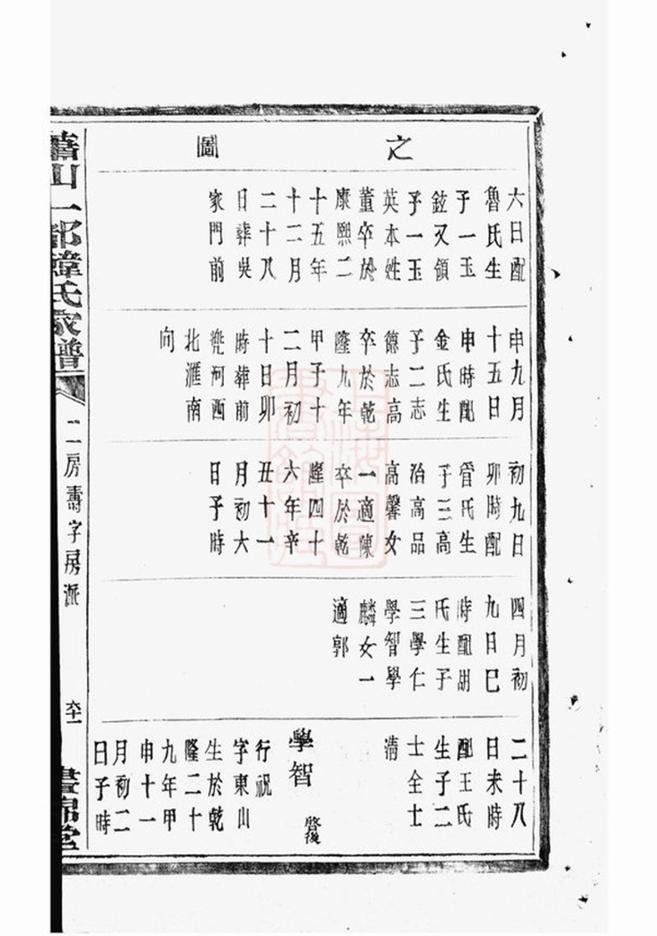 之圖
六日配
魯氏生
子一玉
鉉又領
子一玉
英本姓
董卒於
康熙二
十五年
十二月
二十八
日葬吳
家門前
申九月
十五日
申時配
金氏生
子二志
德志高
卒於乾
隆九年
甲子十
二月初
十日卯
時葬前
兠河西
北滙南
向
初九日
卯時配
管氏生
子三高
治高品
高馨女
一適陳
卒於乾
隆四十
六年辛
丑十一
月初六
日子時
四月初
九日巳
時配胡
氏生子
三學仁
學智學
麟女一
適郭
二十八
日未時
配王氏
生子二
士全士
清
學智
啓後
行祝
字東山
生於乾
隆二十
九年甲
申十一
月初二
日子時
蕭山一都韓氏家譜
二房壽字房派
六十一
晝錦堂